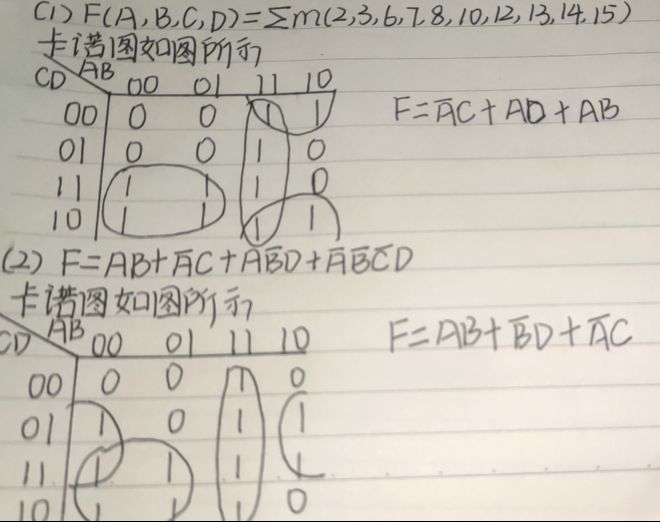 (1) F(A,B,C,D)=∑m(2,3,6,7,8,10,12,13,14,15)
卡诺图如图所示
CD AB 00 01 11 10
00 0 0 1 1
F=A̅C+AD̅+AB
01 0 0 1 0
11 1 1 1 0
10 1 1 1 1
(2) F=AB+A̅C+AB̅D+A̅B̅C̅D
卡诺图如图所示
CD AB 00 01 11 10
F=AB+B̅D+A̅C
00 0 0 1 0
01 1 0 1 1
11 1 1 1 1
10 1 1 1 0